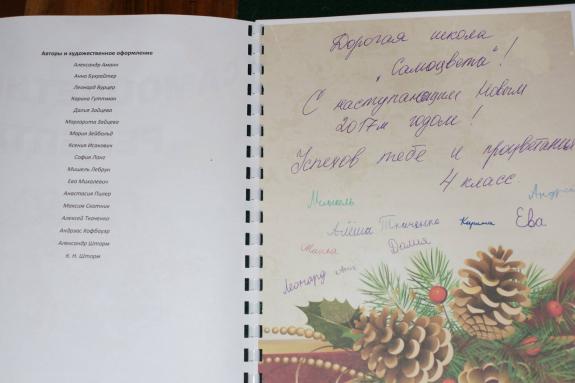 Авторы и художественное оформление
Александр Аманн
Анна Букрайтер
Леонард Вурцер
Карина Гуттман
Далия Зайцева
Маргарита Зайцева
Мария Зейбольд
Ксения Исакович
София Ланг
Мишель Лебрун
Ева Михалевич
Анастасия Пилер
Максим Скотник
Алексей Ткаченко
Андреас Хофбауэр
Александр Шторм
К. Н. Шторм
Дорогая школа
"Самоцвета"!
С наступающим Новым
2017м годом!
Успехов тебе и процветания
4 класс
Мишель
Андреас
Алёша Ткаченко Карина Ева
Далия
Леонард Аня